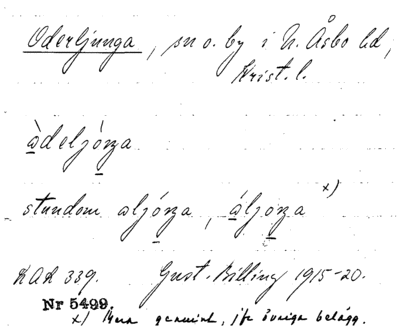 Oderljunga, sn o. by i N. Åsbo hd,
Krist. l.
àdeljóṉa
stundom aljóṉa, áljoṉa x)
KAK 339. Gust. Billing 1915-20.
Nr 5499.
x) Mera genuint, jfr övriga belägg.